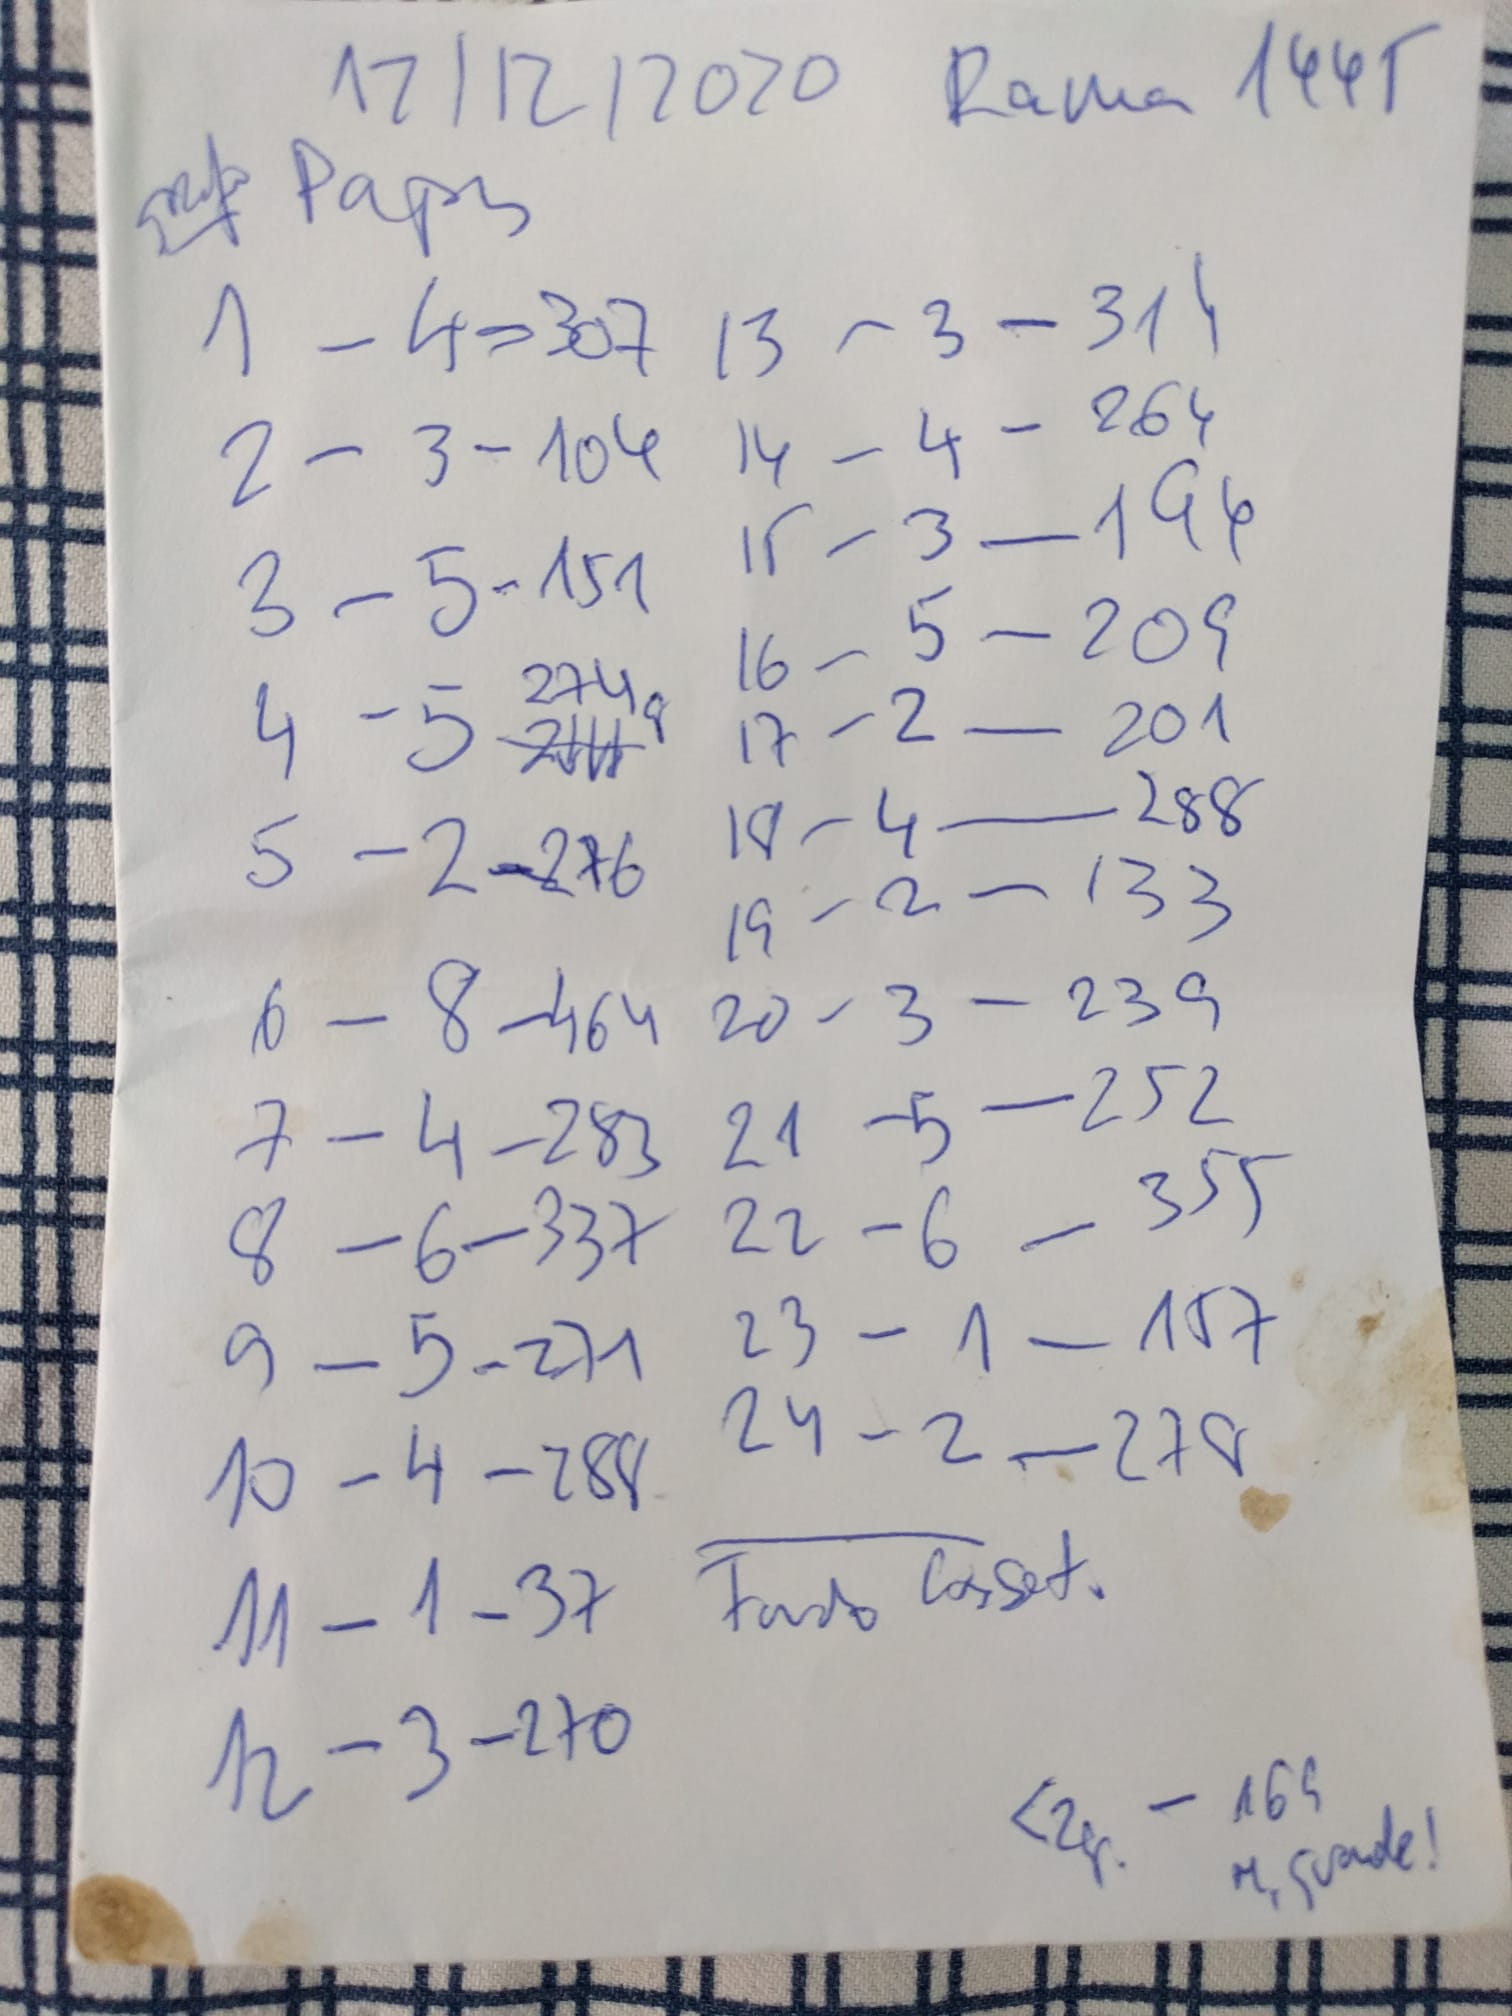 12/12/2020 Rama 1445
Papas
1 - 4 => 307
2 - 3 - 104
3 - 5 - 151
4 - 5 274 g
5 - 2 - 276
6 - 8 - 464
7 - 4 - 283
8 - 6 - 337
9 - 5 - 271
10 - 4 - 288
11 - 1 - 37
12 - 3 - 270
13 - 3 - 314
14 - 4 - 264
15 - 3 - 194
16 - 5 - 209
17 - 2 - 201
18 - 4 - 288
19 - 2 - 133
20 - 3 - 239
21 - 5 - 252
22 - 6 - 355
23 - 1 - 157
24 - 2 - 278
Fondo Casset.
<2g. - 169
grande!